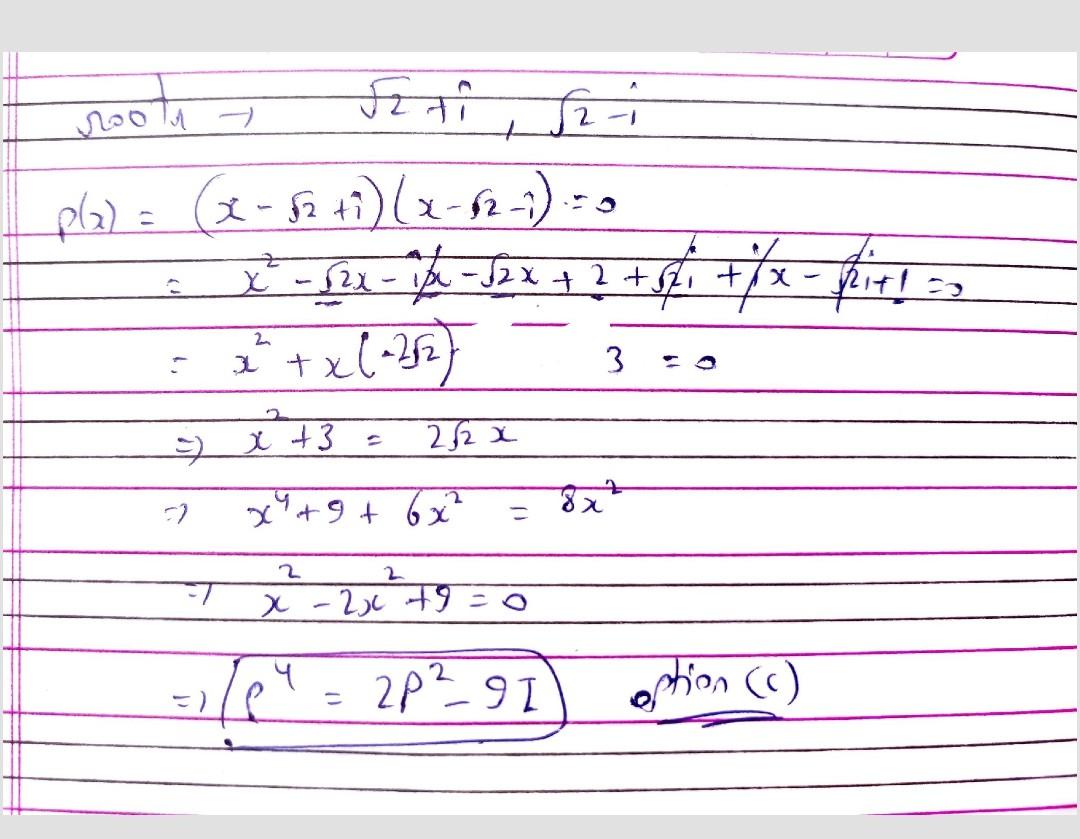 roots → √2 + i , √2 - i
p(x) = (x - √2 + i)(x - √2 - i) = 0
= x² - √2x - ix - √2x + 2 + √2i + ix - √2i + 1 = 0
= x² + x(-2√2) 3 = 0
=> x² + 3 = 2√2 x
=> x⁴ + 9 + 6x² = 8x²
=> x² - 2x² + 9 = 0
=> P⁴ = 2P² - 9I option (c)